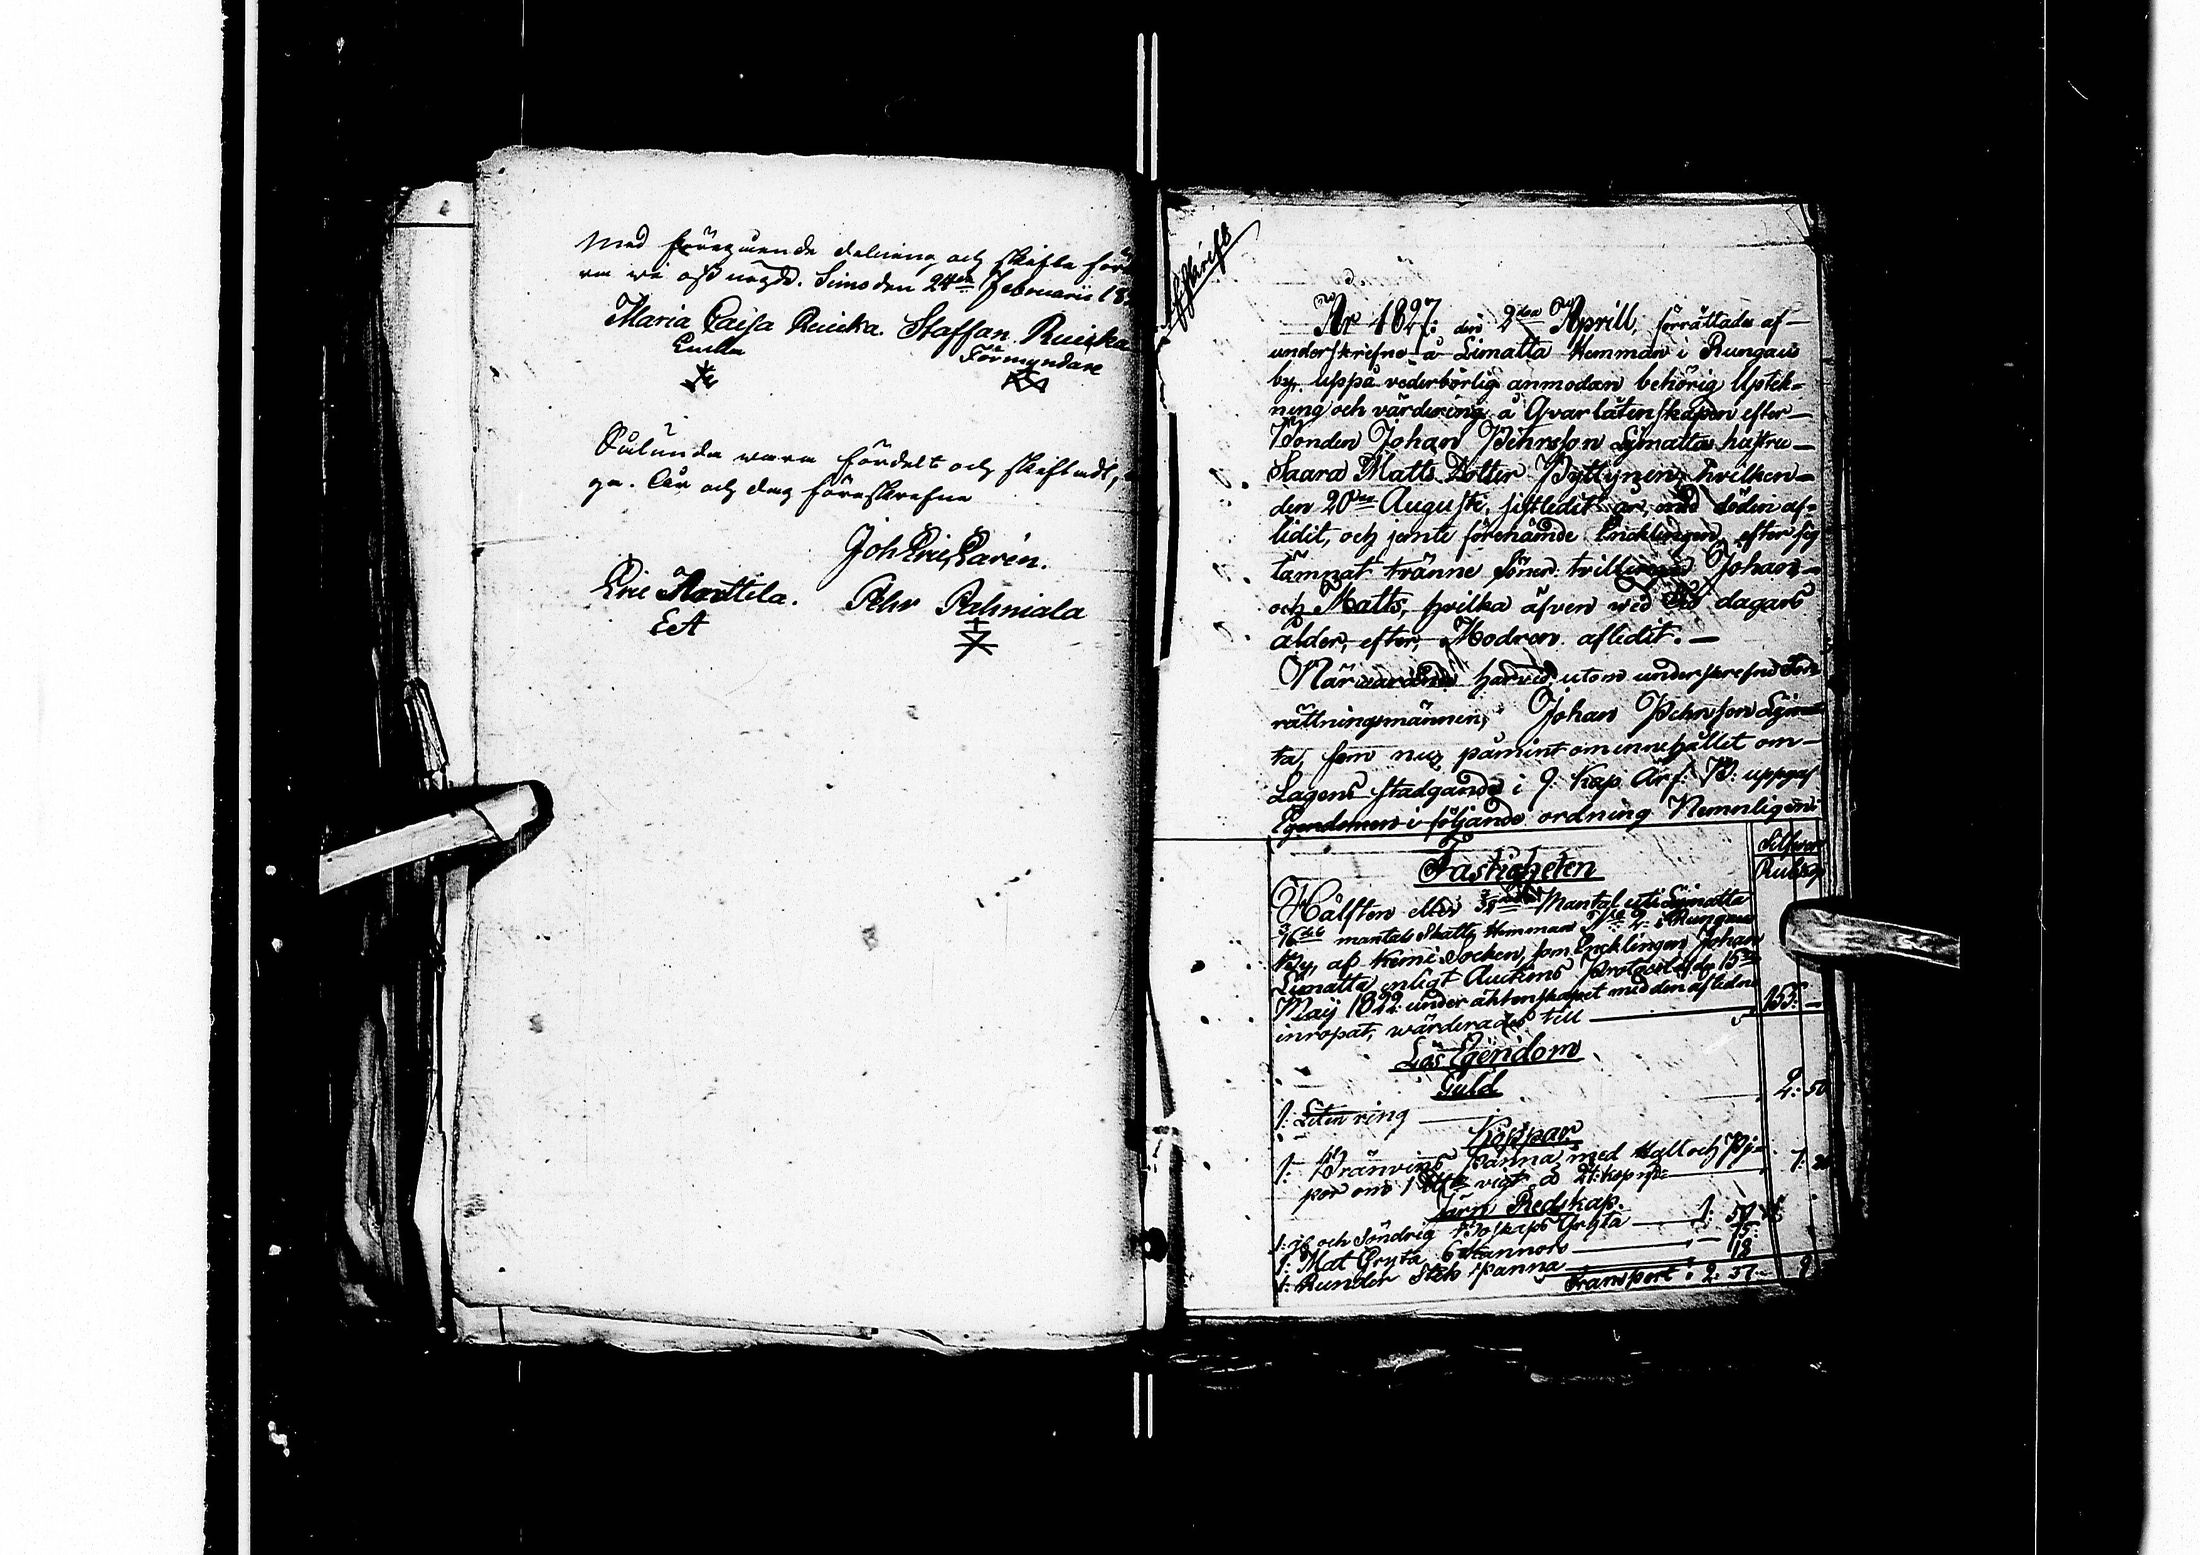 Med föregående delning och skifte förk
ra wi oss nögde. Simo den 24de Februarii 18
Maria Caisa Ruicka. Staffan Ruicka
Enka Förmyndare
Sålunda wara fördelt och skiftadt,
ga. År och dag föreskrefne
Joh Eric Carén.
Eric Marttila. Pehr Rahniala
EeA
Afskrift
År 1827: den 2dra Aprill, förrättade af
underskrefne å Limatta Hemman i Rungau
by, uppå vederbörlig anmodan behörig Uptek-
ning och värdering å Qvarlåtenskapen efter
Bonden Johan Pehrsson Limattas hustru
Saara Matts Dotter Pyttynen, hvilken
den 20de Augusti, sistledit år, med döden af-
lidit, och jemte förenämde Encklingen, efter sig
lämnat tvänne Söner trillingar Johan
och Matts, hvilka äfven wid dagars
ålder, efter, Modren aflidit.
Närwarande härvid, utom underskrefne För
rättningsmännen, Johan Pehrsson Lima
ta, som nu, påmint om innehållet om
Lagens stadgande i 9. Kap. Ärf. B: uppgaf
Egendomen i följande ordning Nemnligen:
Silfwer
Fastigheten Rub. kop
Hälften eller 3/32 Mantal uti Limatta
3/16 mantals Skatte Hemman No 2. i Rungau
By, af Kemi Socken, som Encklingen Johan
Limatta enligt Auctions Protocol af d. 15de
May 1822 under äktenskapet med den aflidne
inropat, wärderades till 155: —
Lös Egendom
Guld
1: Liten ring 2: 50
Koppar
1: Bränvins Panna med Hatt och Pi-
por om 1 vigt å 24 kop
Jern Redskap.
1: och Söndrig Boskaps Gryta 1: 50
1: Mat Gryta 6 Kannors 75:
1: Runder Stek Panna 12
Transport: 2: 37.